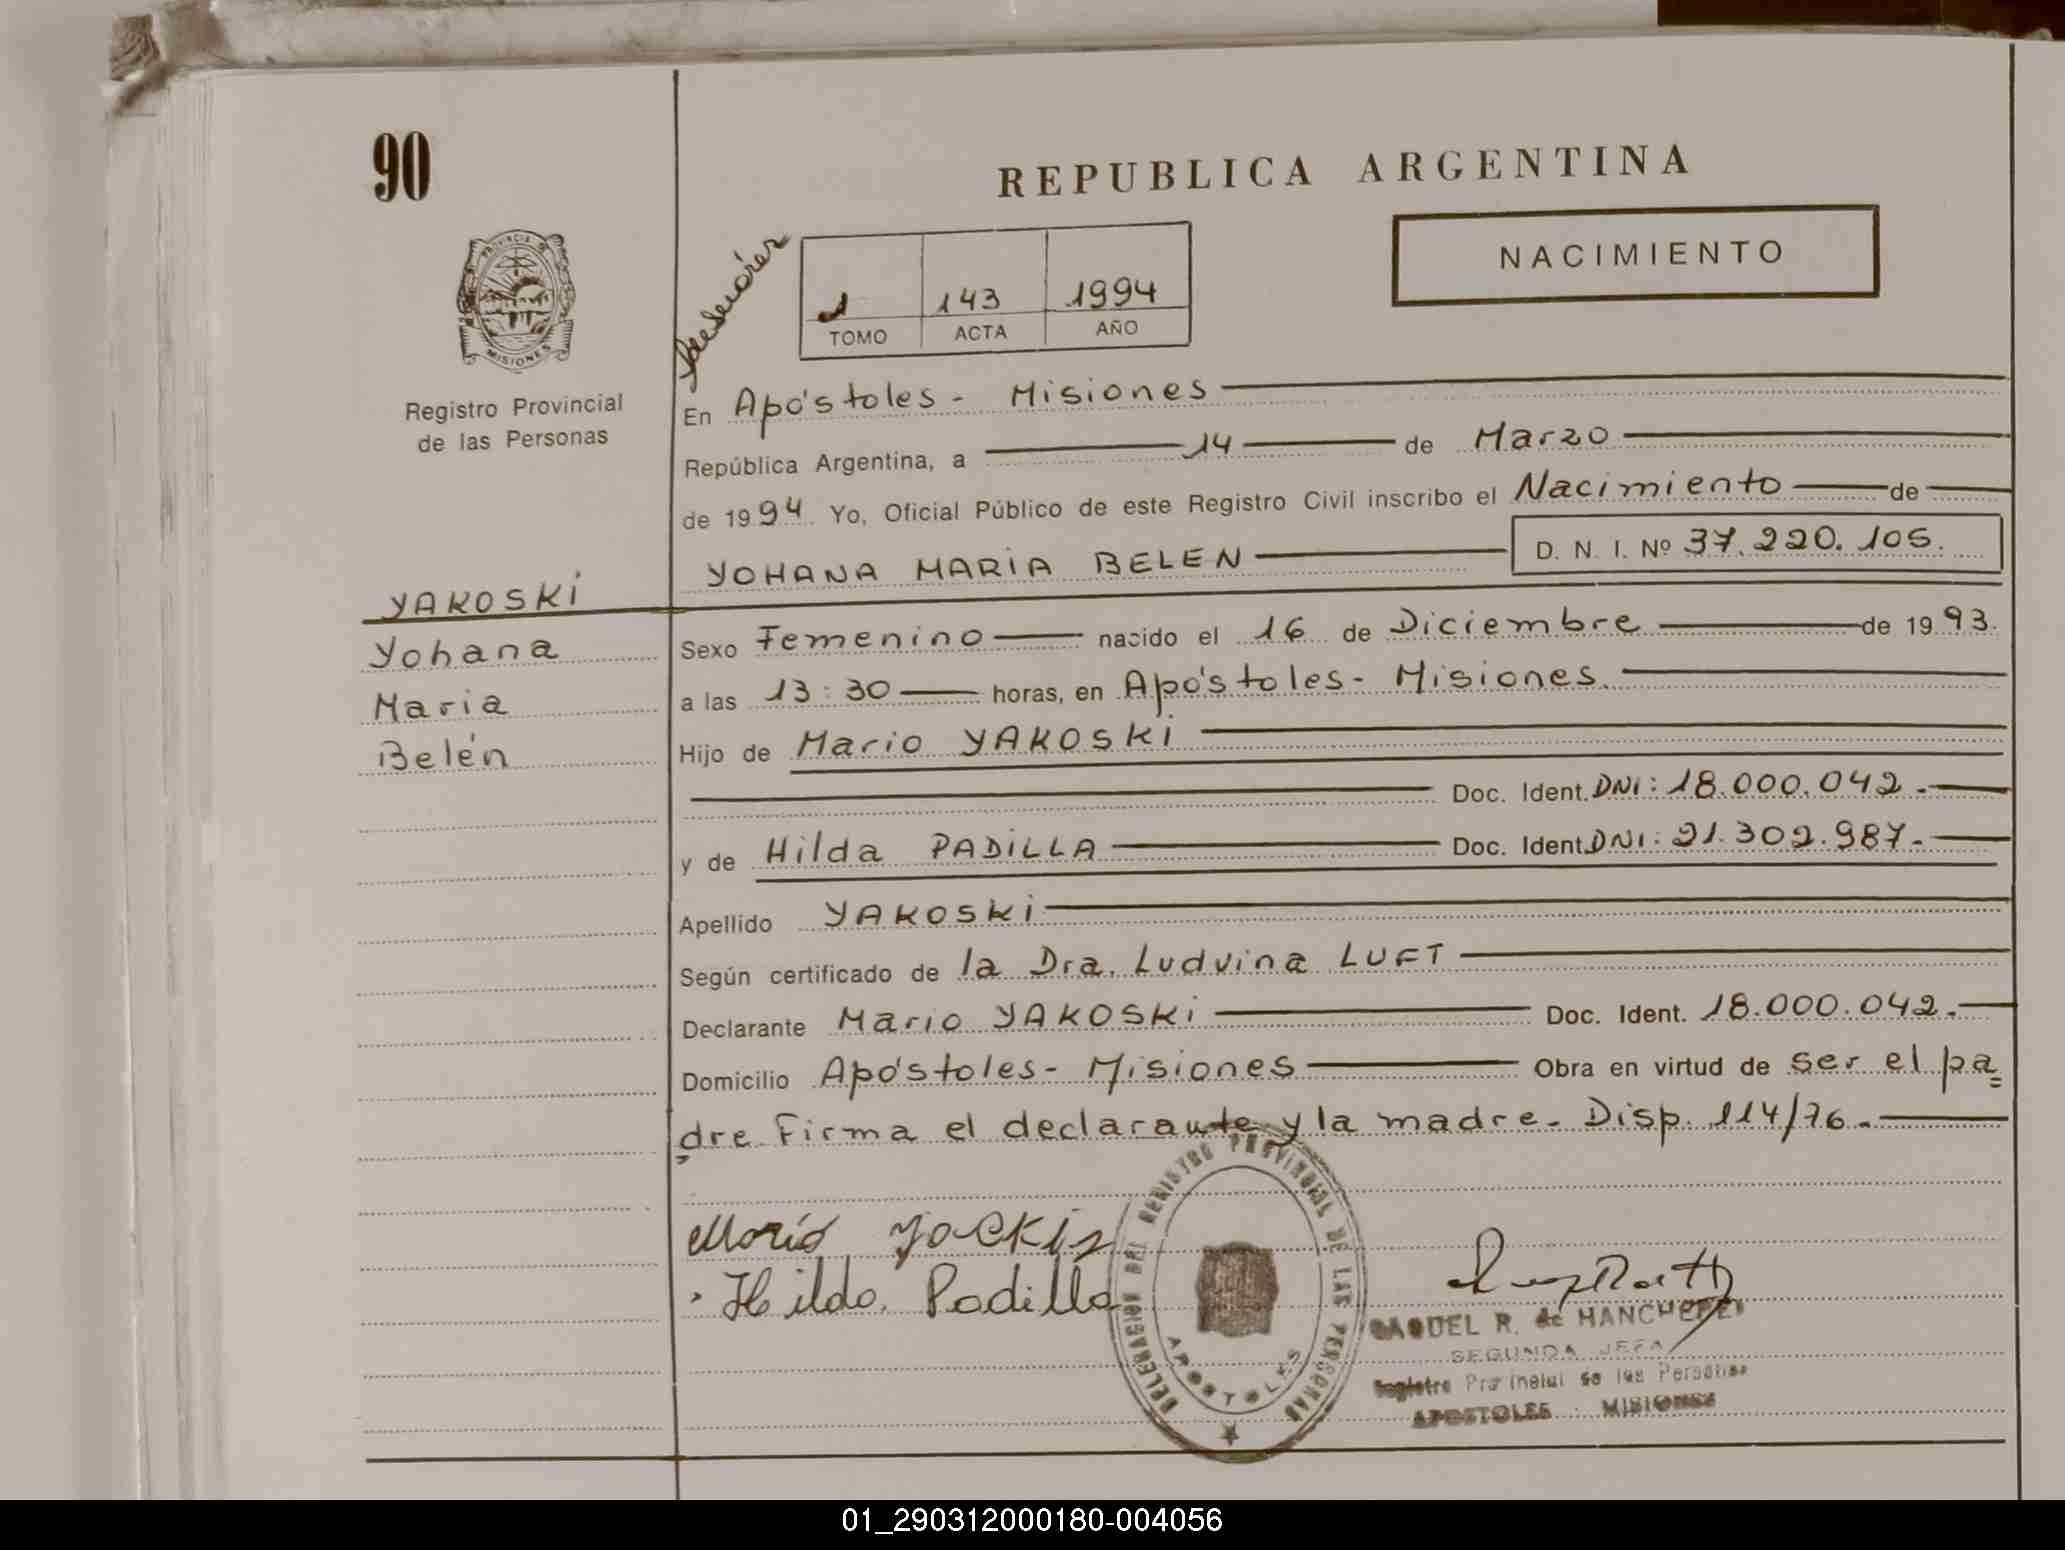 90
REPUBLICA ARGENTINA
NACIMIENTO
1 143 1994
TOMO ACTA AÑO
PROVINCIA DE MISIONES
Registro Provincial
de las Personas
En Apóstoles - Misiones
República Argentina, a 14 de Marzo
de 1994. Yo, Oficial Público de este Registro Civil inscribo el Nacimiento de
YOHANA MARIA BELEN D. N. I. Nº 37.220.105.
YAKOSKI
Yohana
Maria
Belén
Sexo Femenino nacido el 16 de Diciembre de 1993.
a las 13:30 horas, en Apóstoles - Misiones.
Hijo de Mario YAKOSKI
Doc. Ident. DNI: 18.000.042.-
y de Hilda PADILLA Doc. Ident. DNI: 21.302.987.-
Apellido YAKOSKI
Según certificado de la Dra. Ludvina LUFT
Declarante Mario YAKOSKI Doc. Ident. 18.000.042.-
Domicilio Apóstoles - Misiones Obra en virtud de ser el pa=
dre Firma el declarante y la madre. Disp. 114/76.-
Hilda Padilla
DELEGACION DEL REGISTRO PROVINCIAL DE LAS PERSONAS
APOSTOLES
RAQUEL R. de
SEGUNDA JEFA
Registro Provincial de las Personas
APOSTOLES MISIONES
01_290312000180-004056